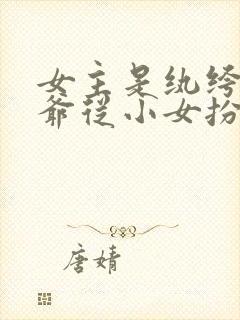 女主是纨绔
爷从小女扮
唐婧